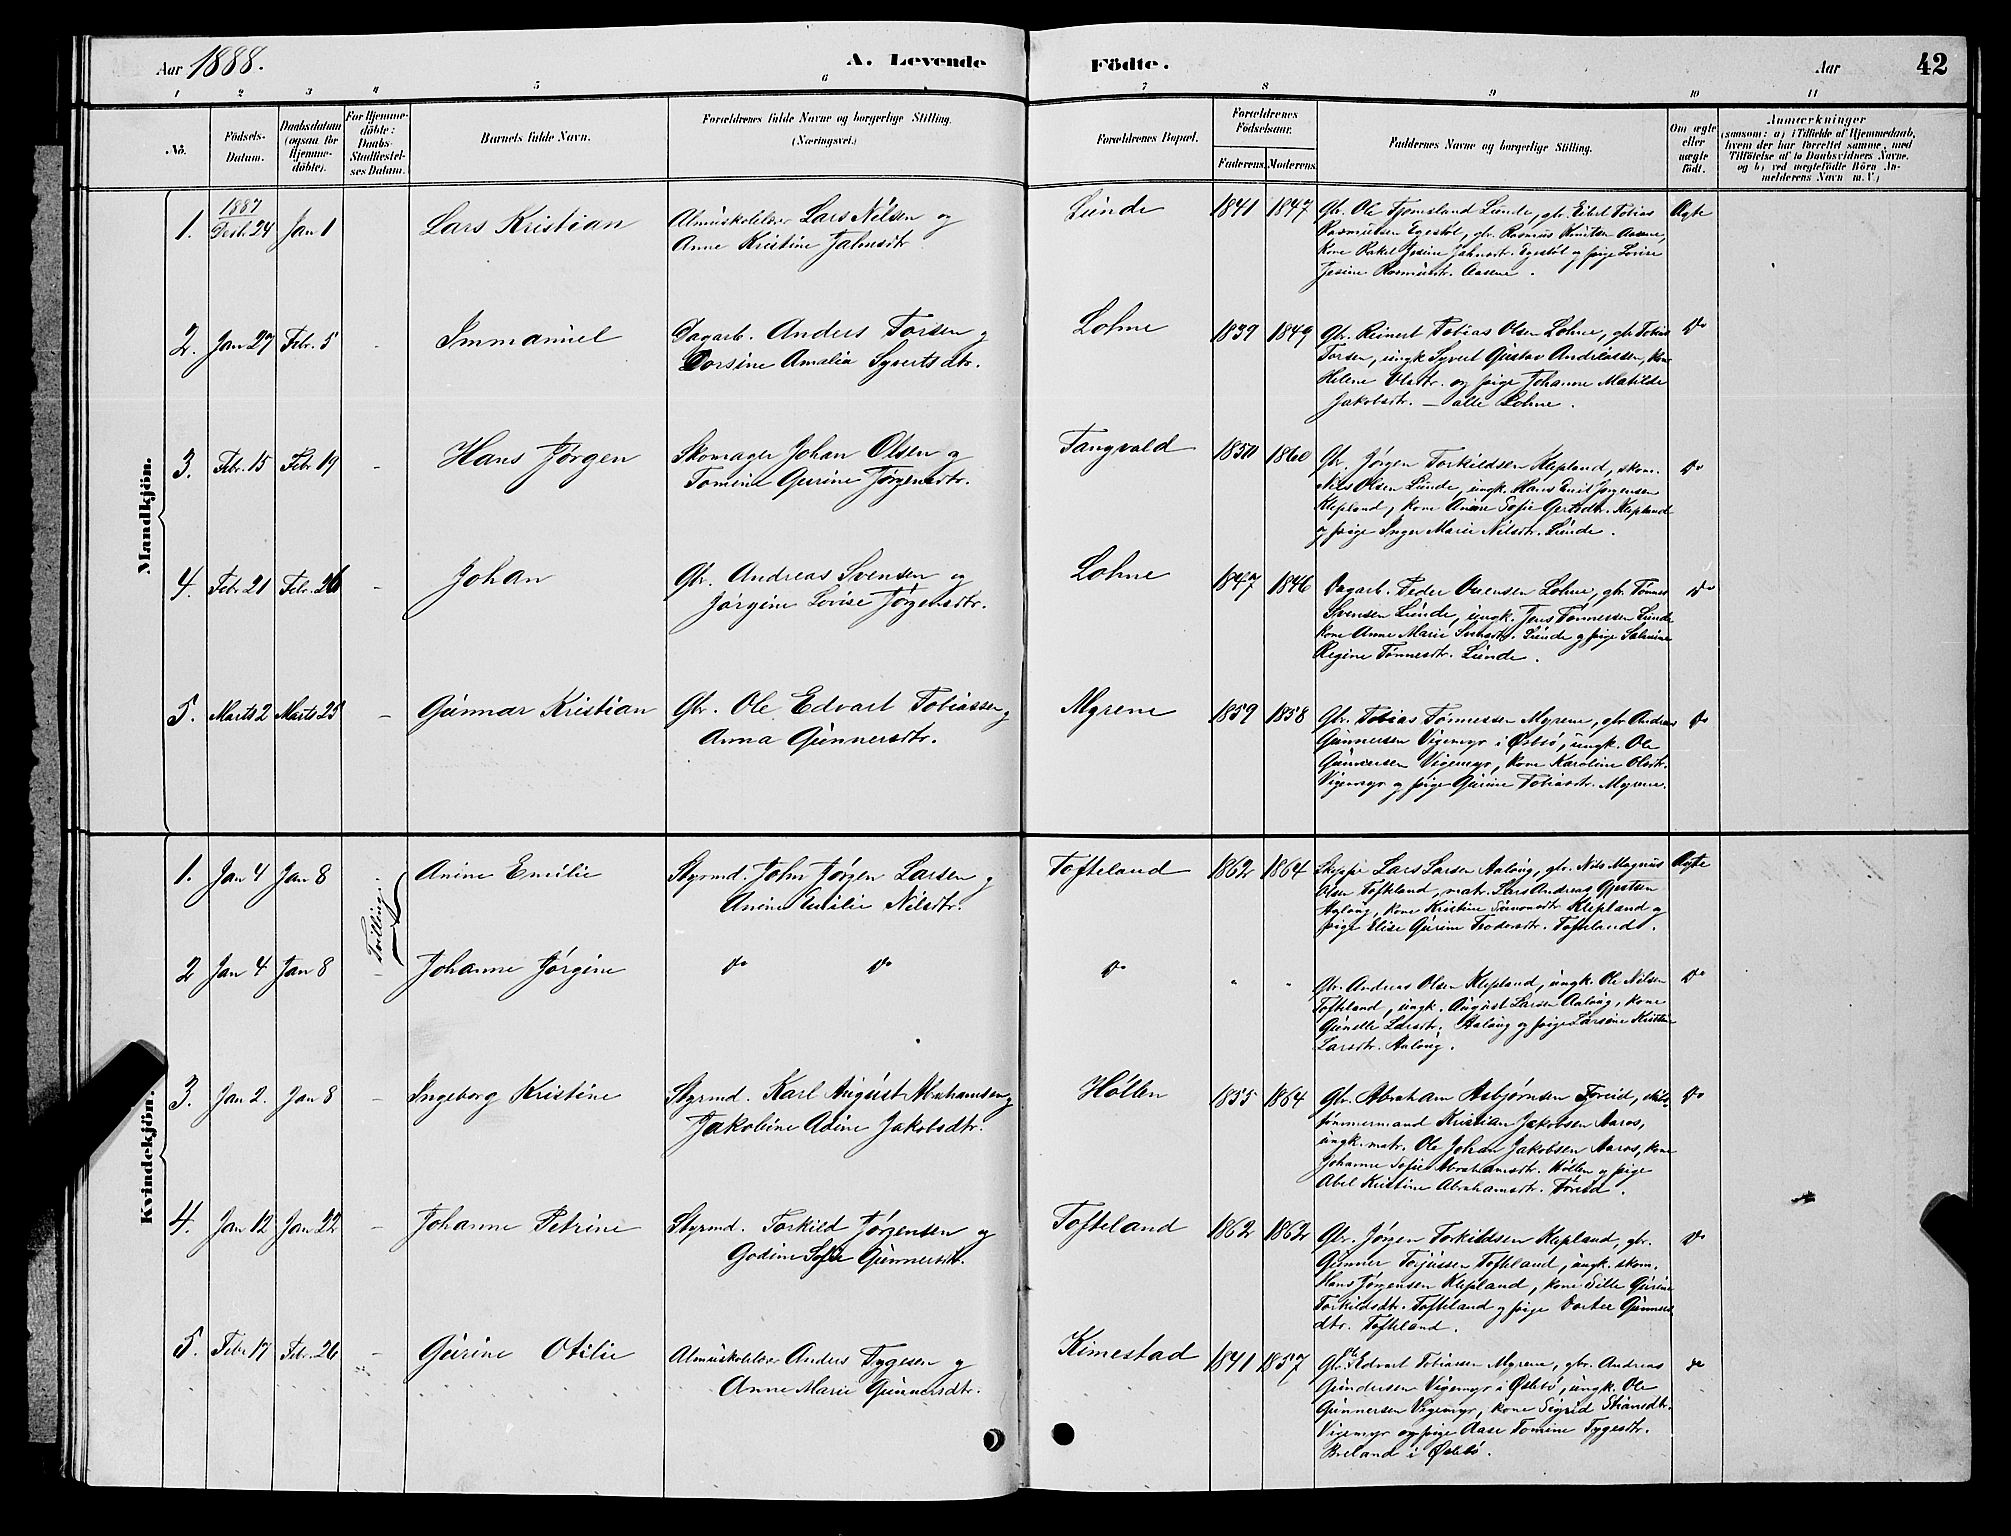 Aar 1888.
A. Levende
Födte.
Aar
42
1
2
3
4
5
6
7
8
9
10
11
No.
Födsels-
Datum.
Daabsdatum
(ogsaa for
Hjemme-
döbte).
For Hjemme-
döbte:
Daabs-
Stadfestel-
ses Datum.
Barnets fulde Navn.
Forældrenes fulde Navne og borgerlige Stilling.
(Næringsvei.)
Forældrenes Bopæl.
Forældrenes
Födselsaar.
Faderens.
Moderens.
Faddernes Navne og borgerlige Stilling.
Om ægte
eller
uægte
födt.
Anmærkninger
(saasom: a) i Tilfælde af Hjemmedaab,
hvem der har forrettet samme, med
Tilföielse af to Daabsvidners Navne.
og b) ved uægtefödte Börn An-
melderens Navn m. V.)
Mandkjön.
1.
1887
Desb. 24
Jan 1
Lars Kristian
Almuskolelærer Lars Nilsen og
Anne Kristine Jahnsdtr.
Lunde
1841
1847
Gbr. Ole Fjomsland Lunde, gbr. Eilert Tobias
Rasmussen Egestøl, gbr. Rasmus Knutsen Aasene,
kone Rakel Jesine Jahnsdtr. Egestøl og pige Lovise
Jesine Rasmusdtr. Aasene.
Ægte
2.
Jan 27
Febr. 5
-
Immanuel
Dagarb. Anders Torsen og
Dorsine Amalia Syvertsdtr.
Lohne
1839
1849
Gbr. Reinert Tobias Olsen Lohne, gbr. Tobias
Torsen, ungk. Syvert Gustav Andreassen, kone
Helene Olsdtr. og pige Johanne Matilde
Jakobsdtr. – alle Lohne.
do
3.
Febr. 15
Febr 19
-
Hans Jørgen
Skomager Johan Olsen og
Tomine Gurine Jørgensdtr.
Tangvald
1850
1860
Gbr. Jørgen Torkildsen Klepland, skom.
Nils Olsen Lunde, ungk. Hans Emil Jørgensen
Klepland, kone Anne Sofie Gertsdtr. Klepland
og pige Inger Marie Nilsdtr. Lunde.
do
4.
Febr 21
Febr. 26
-
Johan
Gbr. Andreas Svensen og
Jørgine Lovise Jørgensdtr.
Lohne
1847
1846
Dagarb. Peder Ouensen Lohne, gbr. Tønnes
Svensen Lunde, ungk. Jens Tønnessen Lunde
kone Anne Marie Lunde og pige Salmine
Regine Tønnesdtr. Lunde.
do
5.
Marts 2
Marts 25
-
Gunnar Kristian
Gbr. Ole Edvart Tobiassen og
Anna Gunnersdtr.
Myrene
1859
1858
Gbr. Tobias Tønnessen Myrene, gbr. Andreas
Gunnersen Vigemyr i Øslebø, ungk. Ole
Gunnersen Vigemyr, kone Karoline Olsdtr.
Vigemyr og pige Gurine Tobiasdtr. Myrene.
do
Kvindekjön.
1.
Jan 4
Jan 8
Tvilling
Anine Emilie
Styrmd. John Jørgen Larsen og
Anine Emilie Nilsdtr.
Tofteland
1862
1864
Skipper Lars Larsen Aaløug, gbr. Nils Magnus
Olsen Tofteland, matr. Lars Andreas
Aaløug, kone Kristine Simonsdtr Klepland og
pige Elise Gurine Teodorsdtr. Tofteland.
Ægte
2
Jan 4
Jan 8
Johanne Jørgine
do do
do
"
"
Gbr. Andreas Olsen Klepland, ungk. Ole Nilsen
Tofteland, ungk. August Larsen Aaløug, kone
Gunelle Larsdtr. Aaløug og pige Larsine Kristine
Larsdtr. Aaløug.
do
3.
Jan 2.
Jan 8
-
Ingeborg Kristine
Styrmd. Karl August Abrahamsen og
Jakobine Adine Jakobsdtr.
Høllen
1855
1864
Gbr. Abraham Asbjørnsen Føreid, skibs-
tømmermand Kristian Jakobsen Aaros,
ungk. matr. Ole Johan Jakobsen Aaros, kone
Johanne Sofie Abrahamsdtr. Høllen og pige
Abel Kristine Abrahamsdtr. Føreid.
do
4.
Jan 12
Jan 22
-
Johanne Petrine
Styrmd. Torkild Jørgensen og
Godine Sofie Gunnersdtr.
Tofteland
1862
1862
Gbr. Jørgen Torkildsen Klepland, gbr.
Gunner Torjussen Tofteland, ungk. skom.
Hans Jørgensen Klepland, kone Sille Gurine
Torkildsdtr. Tofteland og pige Dortee Gunners-
dtr. Tofteland.
do
5.
Febr 17
Febr. 26
-
Gurine Otilie
Almuskolelærer Anders Tygesen og
Anne Marie Gunnersdtr.
Kimestad
1841
1857
Gbr. Ole Edvart Tobiassen Myrene, gbr. Andreas
Gundersen Vigemyr i Øslebø, ungk. Ole
Gunnersen Vigemyr, kone Sigrid
Vigemyr og pige Aase Tomine Tygesdtr.
Breland i Øslebø.
do